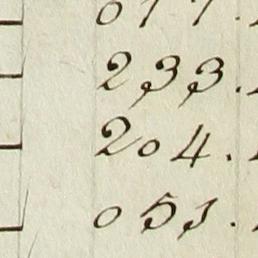 233.
204.
051.